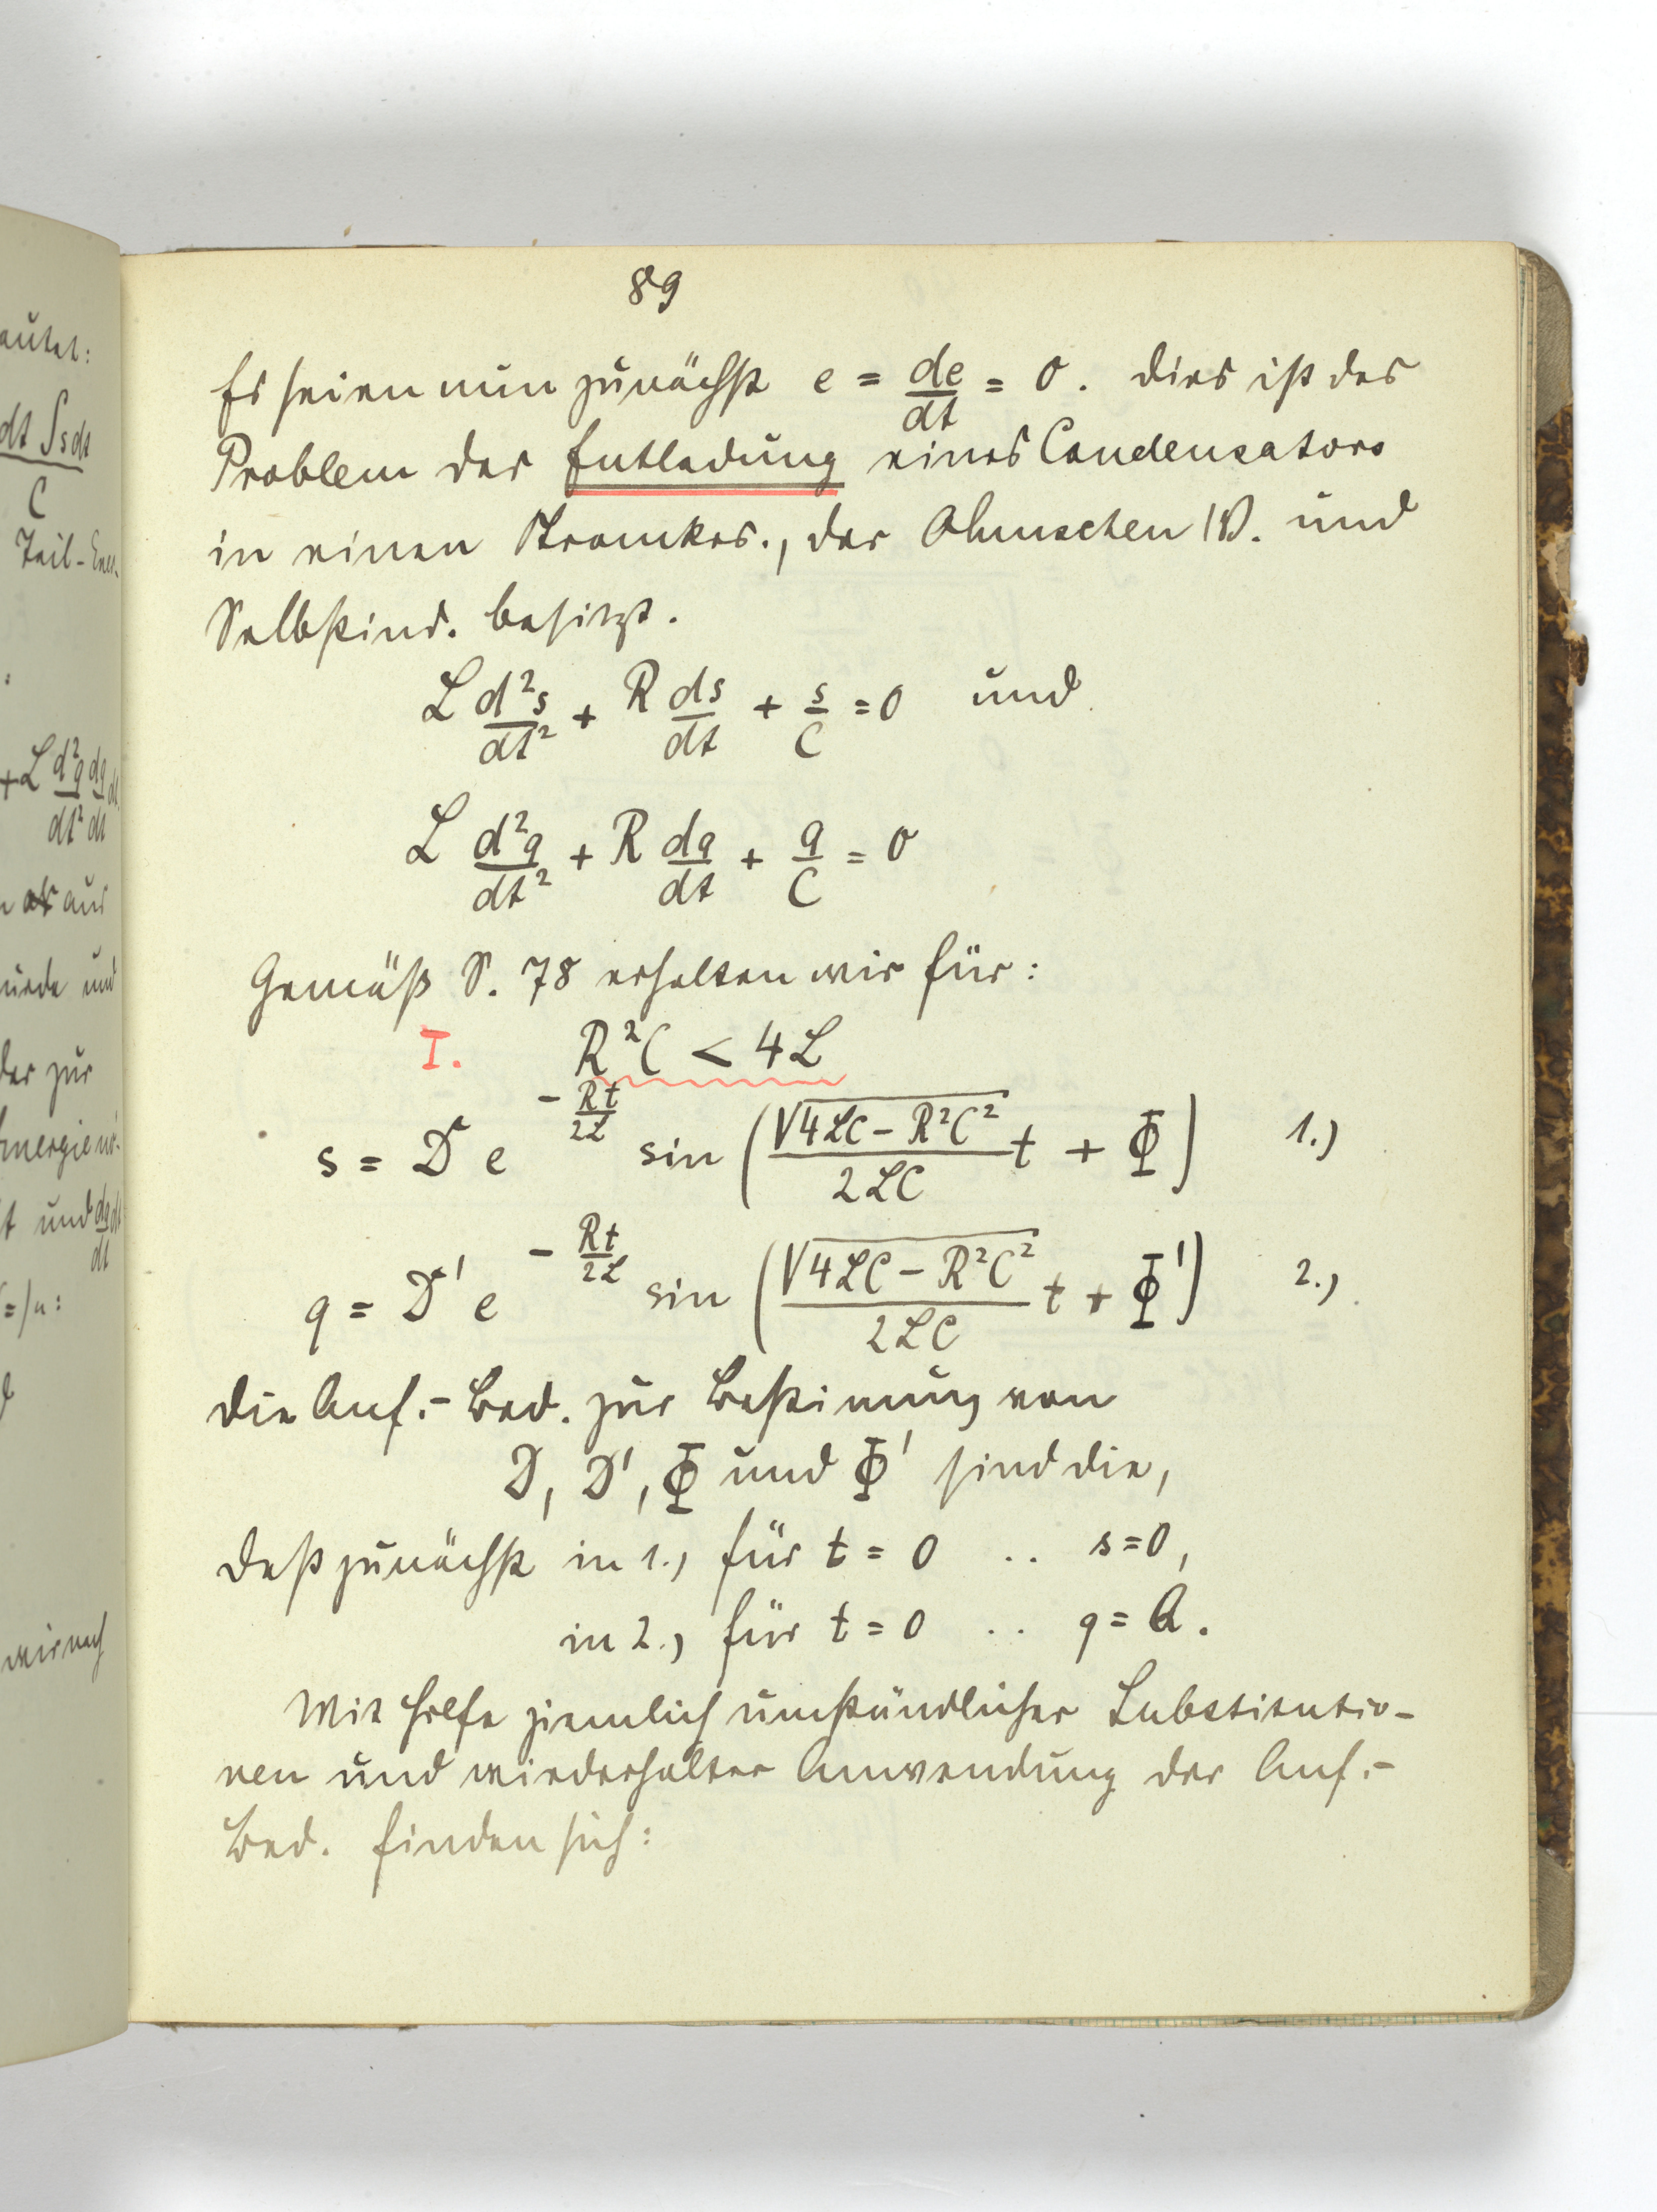 89
Es seien nun zunächst e = de/dt = 0. Dies ist das
Problem der Entladung eines Condensators
in einen Stromkrs., der Ohmschen W. und
Selbstind. besitzt.
L d²s/dt² + R ds/dt + s/C = 0 und
L d²q/dt² + R dq/dt + q/C = 0
Gemäß S. 78 erhalten wir für:
I. R²C < 4L
s = D e^(-Rt/2L) sin (√(4LC - R²C²)/2LC t + Φ) 1.)
q = D' e^(-Rt/2L) sin (√(4LC - R²C²)/2LC t + Φ') 2.)
Die Anf.-Bed. zur Bestimmung von
D, D', Φ und Φ' sind die,
daß zunächst in 1.) für t = 0 .. s = 0,
in 2.) für t = 0 .. q = Q.
Mit Hilfe ziemlich umständlicher Substitutio-
nen und wiederholter Anwendung der Anf.-
Bed. finden sich:
autet:
dt ∫s dt
C
Teil-Ener.
+L d²q/dt² dq/dt dt
aus
wurde und
der zur
t und dq/dt dt
wir nach